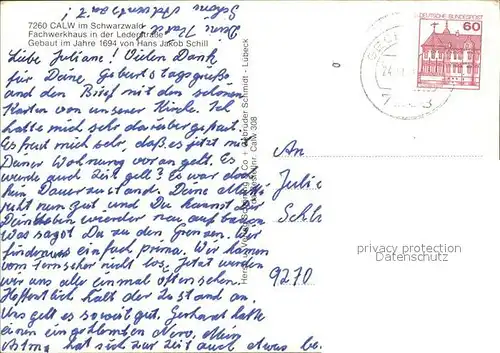 Schöne
7260 CALW im Schwarzwald
Fachwerkhaus in der Lederstraße
Gebaut im Jahre 1694 von Hans Jakob Schill
Liebe Juliane! Vielen Dank
für Deine Geburtstagsgrüße
und den Brief mit den schönen
Karten von unserer Kirche. Ich
hatte mich sehr darüber gefreut.
Es freut mich sehr, daß es jetzt mit
Deiner Wohnung voran geht. Es
wurde auch Zeit gell? Es war doch
kein Dauerzustand. Deine
geht nun gut und Du kannst Dir
Dein Leben wieder neu aufbauen
Was sagst Du zu den Grenzen. Wir
finden es einfach prima. Wir kamen
vom Fernseher nicht los. Jetzt werden
wir uns alle einmal öfter sehen.
Hoffentlich hält der Zustand an.
Uns geht es soweit gut. Gerhard hatte
einen eingeklemmten Nerv. Mein
Astma hat sich zur Zeit auch etwas be.
Gebrüder Schmidt - Lübeck
Calw 308
DEUTSCHE BUNDESPOST
60
An
Julie
Sch
9270
PRIVACY PROTECTION
Datenschutz